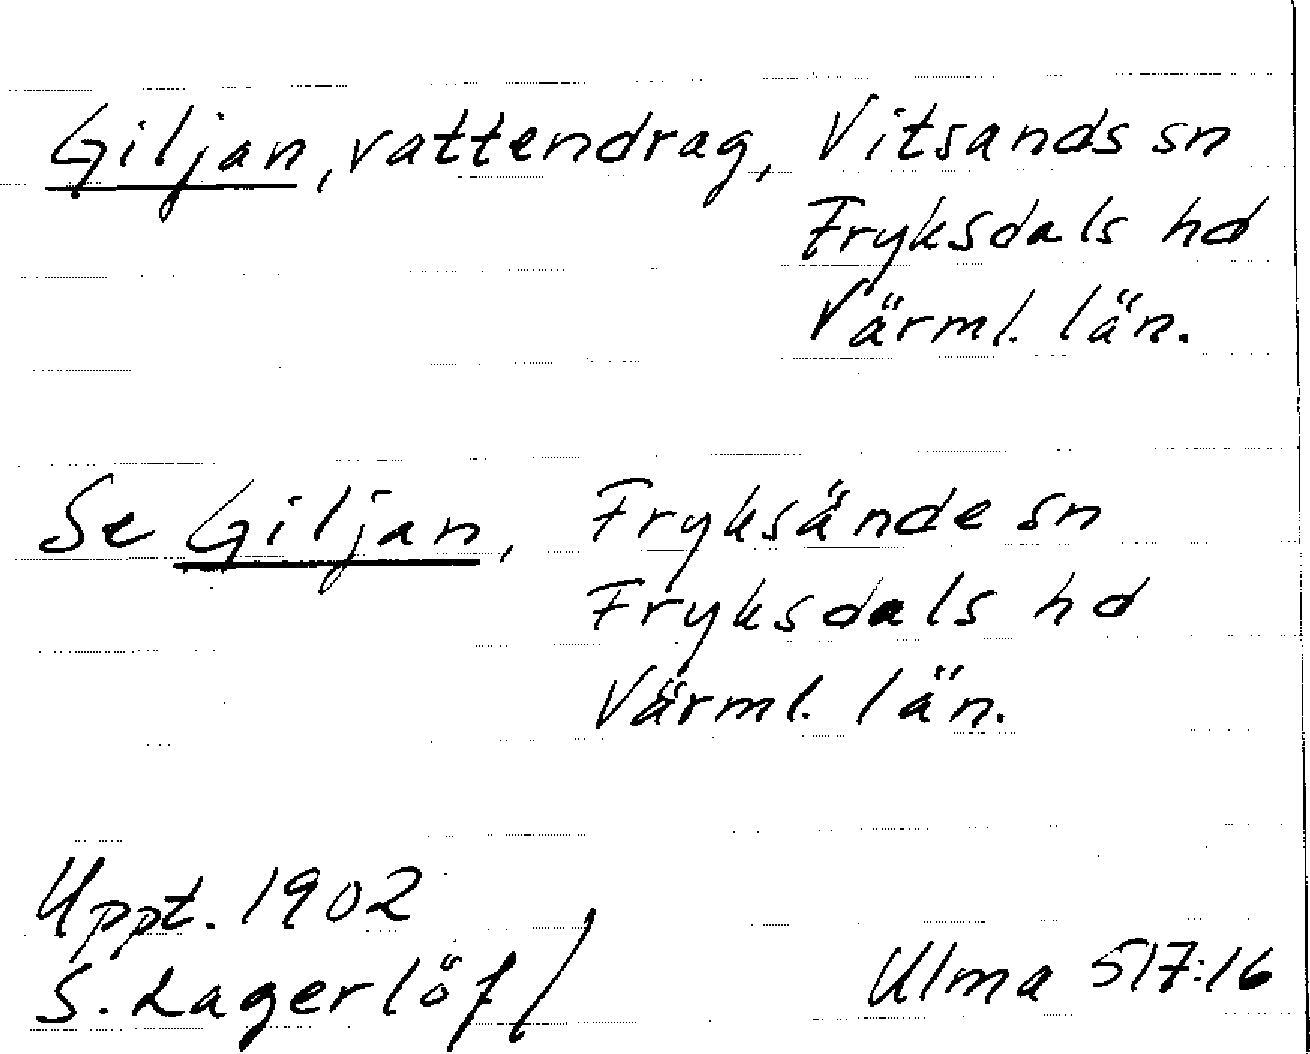 Giljan, vattendrag, Vitsands sn
Fryksdals hd
Värml. län.
Se Giljan, Fryksände sn
Fryksdals hd
Värml. län.
Uppt. 1902
S. Lagerlöf/
Ulma 517:16